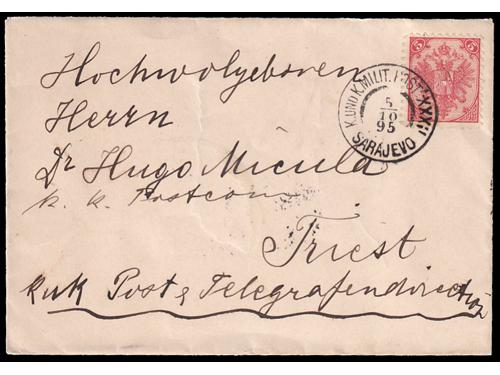 Hochwolgeboren
Herrn
Dr Hugo Micula
k. k. Postcom
Triest
kuk Post & Telegrafendirection
5
5
K.UND K.MILIT.POST XXXII
5
10
95
SARAJEVO